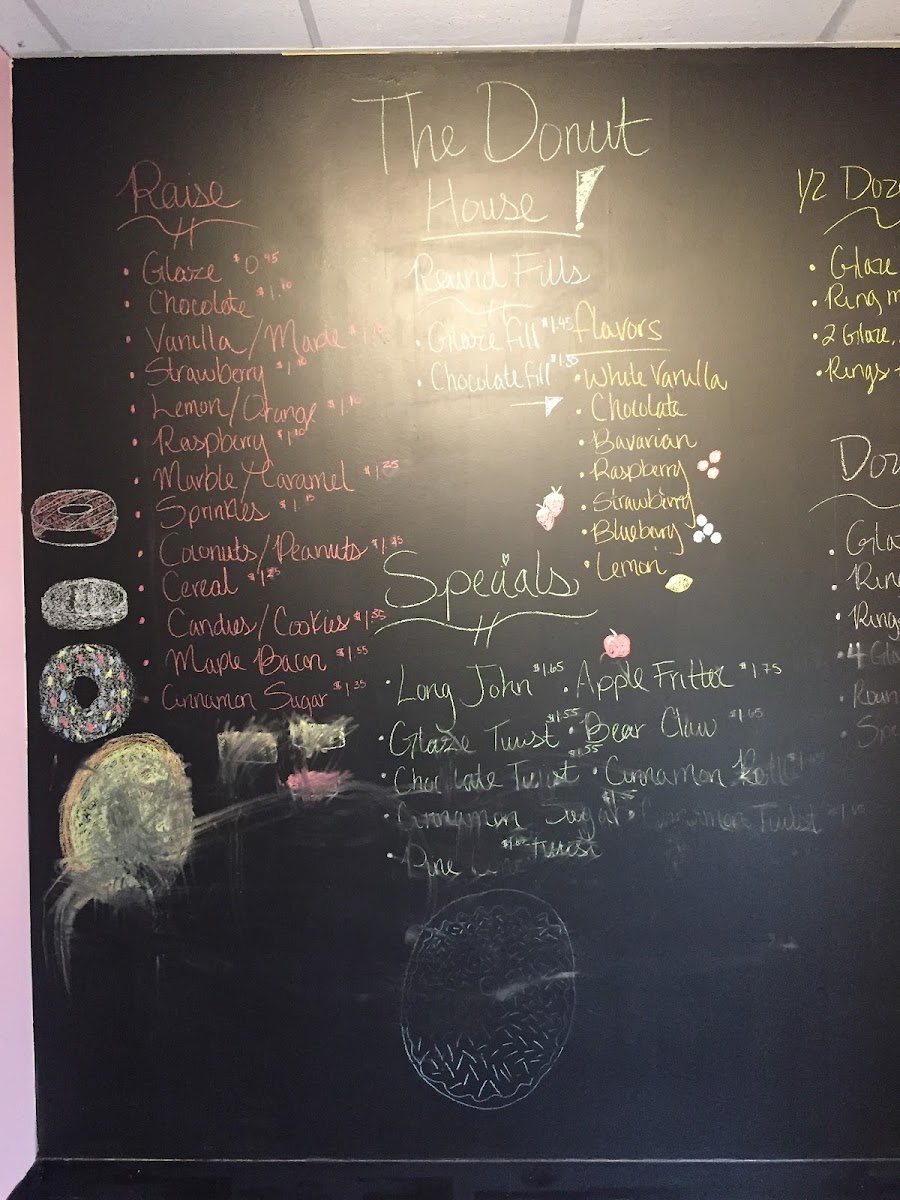 The Donut
House!
Raise
• Glaze $0.95
• Chocolate $1.10
• Vanilla/Maple
• Strawberry $1.10
• Lemon/Orange $1.10
• Raspberry $1.10
• Marble/Caramel $1.25
• Sprinkles $1.15
• Coconuts/Peanuts $1.25
• Cereal $1.25
• Candies/Cookies $1.35
• Maple Bacon $1.55
• Cinnamon Sugar $1.35
Round Fills
• Glaze Fill $1.45
• Chocolate Fill $1.55
Flavors
• White Vanilla
• Chocolate
• Bavarian
• Raspberry
• Strawberry
• Blueberry
• Lemon
Specials
• Long John $1.65
• Glaze Twist $1.55
• Chocolate Twist $1.55
• Cinnamon Sugar Twist
• Pine
• Apple Fritter $1.75
• Bear Claw $1.65
• Cinnamon Roll
• Cinnamon Twist
1/2 Doz
• Glaze
• Ring m
• 2 Glaze,
• Rings
Doz
• Gla
• Ring
• Rings
• 4 Gla
• Roun
• Spe